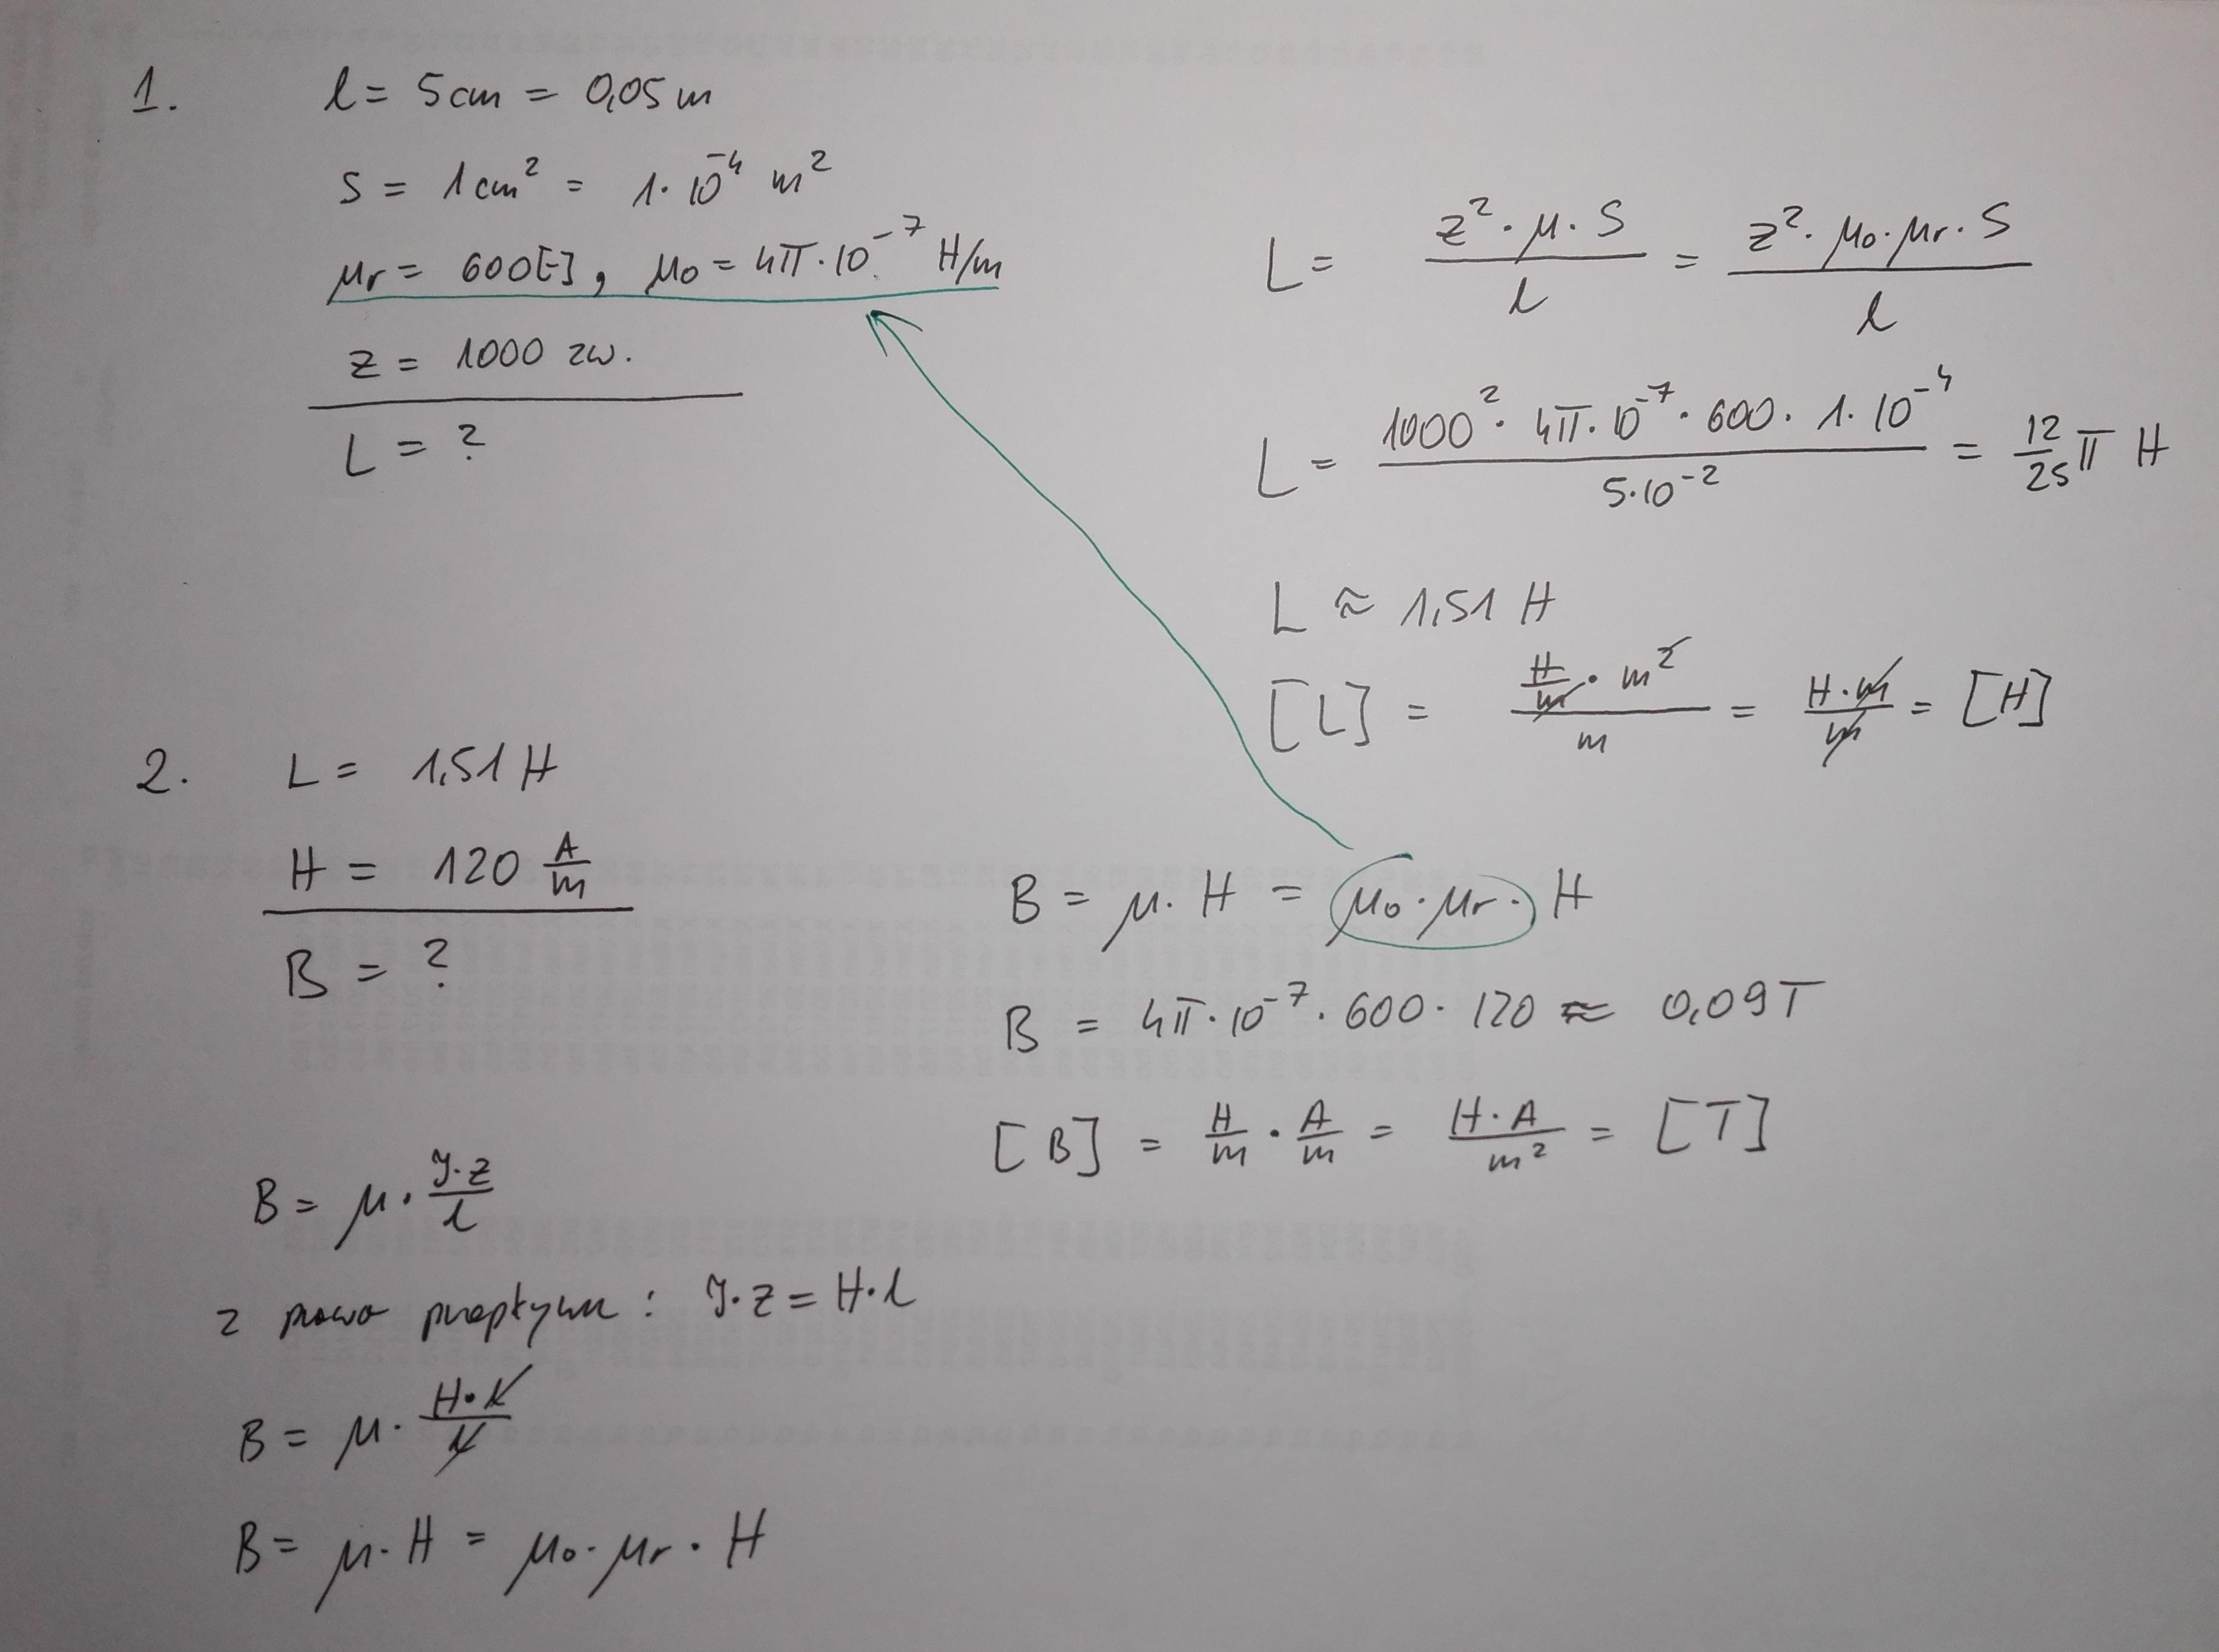 1. l = 5 cm = 0,05 m
S = 1 cm² = 1·10⁻⁴ m²
μr = 600[-], μ₀ = 4π·10⁻⁷ H/m
z = 1000 zw.
L = ?
L = z²·μ·S / l = z²·μ₀·μr·S / l
L = 1000²·4π·10⁻⁷·600·1·10⁻⁴ / 5·10⁻² = 12/25 π H
L ≈ 1,51 H
[L] = H/m · m² / m = H·m / m = [H]
2. L = 1,51 H
H = 120 A/m
B = ?
B = μ·H = μ₀·μr·H
B = 4π·10⁻⁷·600·120 ≈ 0,09T
[B] = H/m · A/m = H·A / m² = [T]
B = μ · I·z / l
z prawa przepływu : I·z = H·l
B = μ · H·l / l
B = μ·H = μ₀·μr·H